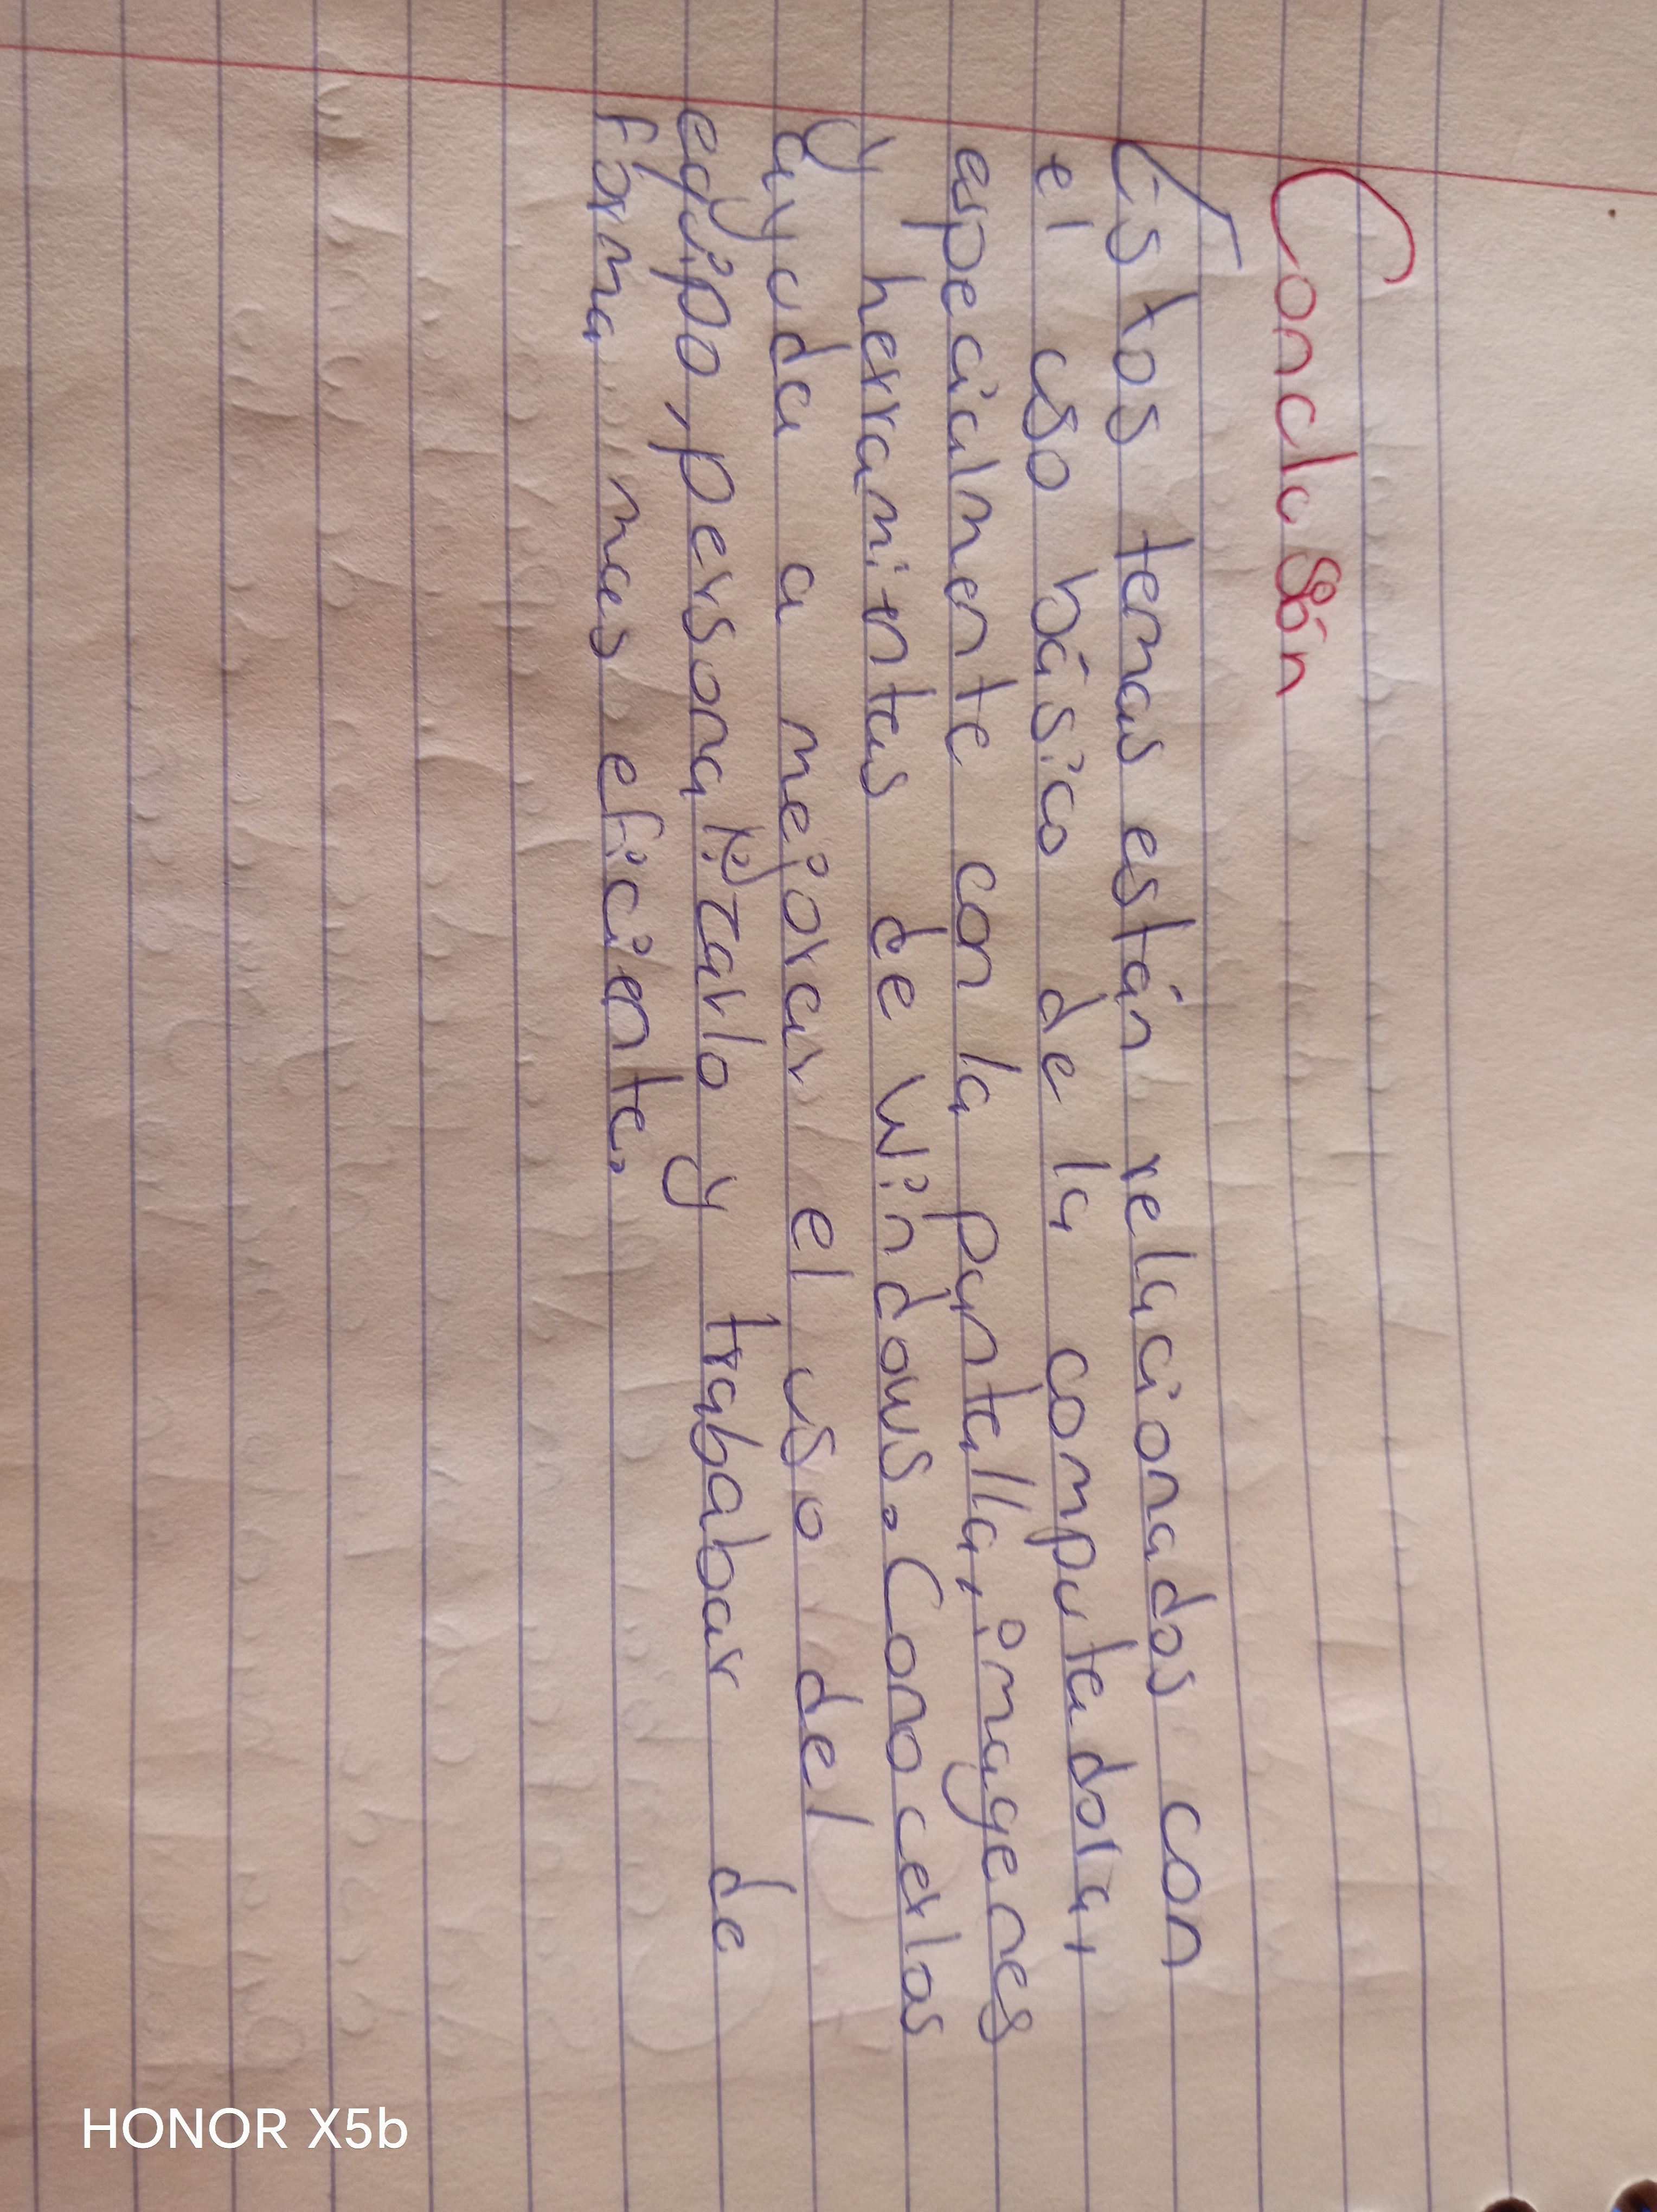 Conclusión
Estos temas están relacionados con
el uso básico de la computadora,
especialmente con la pantalla, imagenes
y herramintas de Windows. Conocerlos
ayuda a mejorar el uso del
equipo, personalizarlo y trababar de
forma mas eficiente.
HONOR X5b